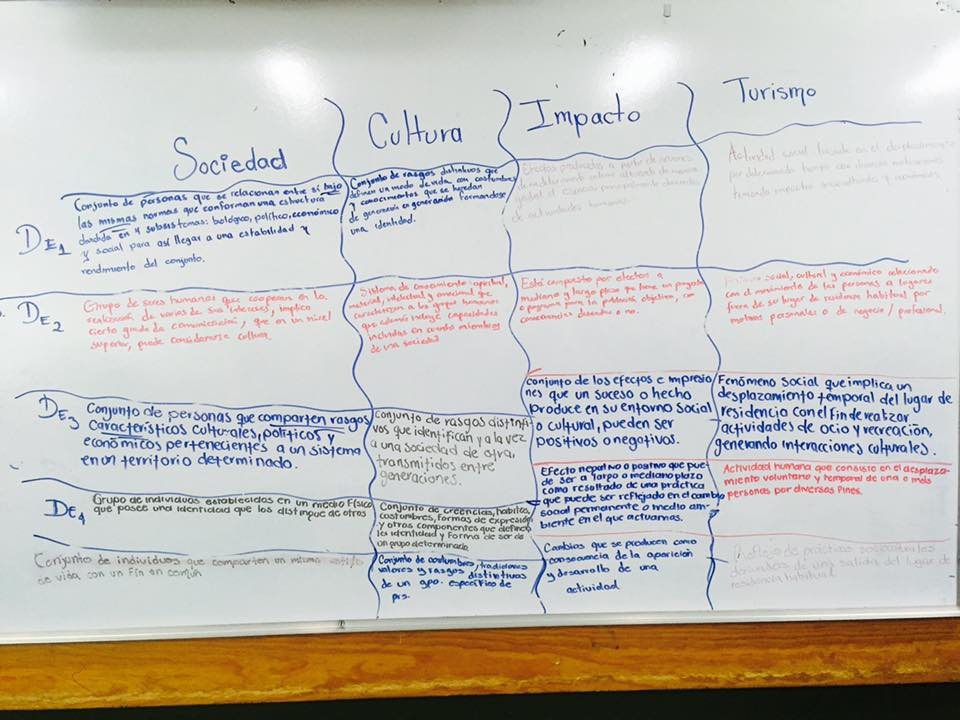 Sociedad
Cultura
Impacto
Turismo
DE1
Conjunto de personas que se relacionan entre sí bajo
las mismas normas que conforman una estructura
dividida en 4 subsistemas: biológico, político, económico
y social para así llegar a una estabilidad y
rendimiento del conjunto.
Conjunto de rasgos distintivos que
definen un modo de vida, con costumbres
y conocimientos que se heredan
de generación en generación formandose
una identidad.
Efectos producidos a partir de acciones
de actividades humanas.
Actividad social basada en el desplazamiento
por determinado tiempo con diversas motivaciones
teniendo impactos
DE2
Grupo de seres humanos que cooperan en la
realización de varios de sus intereses, implica
cierto grado de comunicación, que en un nivel
superior, puede considerarse cultura
Sistema de conocimiento espiritual,
material, intelectual y emocional que
caracteriza a los grupos humanos
que además incluye capacidades
incluidas en cuanto miembros
de una sociedad
Está compuesto por efectos a
mediano y largo plazo que tiene un proyecto
o programa para la población objetivo, con
consecuencias deseadas o no.
social, cultural y económico relacionado
con el movimiento de las personas a lugares
fuera de su lugar de residencia habitual por
motivos personales o de negocio / profesional.
DE3
Conjunto de personas que comparten rasgos
característicos culturales, políticos y
económicos pertenecientes a un sistema
en un territorio determinado.
Conjunto de rasgos distinti-
vos que identifican y a la vez
a una sociedad de otra,
transmitidos entre
generaciones.
Conjunto de los efectos e impresio
nes que un suceso o hecho
produce en su entorno social
o cultural, pueden ser
positivos o negativos.
Fenómeno social que implica un
desplazamiento temporal del lugar de
residencia con el fin de realizar
actividades de ocio y recreación,
generando interacciones culturales.
DE4
Grupo de individuos establecidos en un medio físico
que posee una identidad que los distingue de otros
Conjunto de creencias, hábitos,
costumbres, formas de expresión
y otros componentes que definen
la identidad y forma de ser de
un grupo determinado.
Efecto negativo o positivo que pue-
de ser a largo o mediano plazo
como resultado de una práctica
que puede ser reflejado en el cambio
social permanente o medio am-
biente en el que actuamos.
Actividad humana que consiste en el desplaza-
miento voluntario y temporal de una o más
personas por diversos fines.
Conjunto de individuos que comparten un mismo
de vida con un fin en común
Conjunto de costumbres, tradiciones
valores y rasgos distintivos
de un gpo. específico de
prs.
Cambios que se producen como
consecuencia de la aparición
y desarrollo de una
actividad
Reflejo de prácticas
de una salida del lugar de
residencia habitual